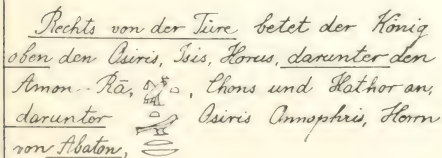 Rechts von der Türe betet der König
oben den Osiris, Isis, Horus, darunter den
Amon-Rā, , Chons und Hathor an,
darunter Osiris Onnophris, Herrn
von Abaton,